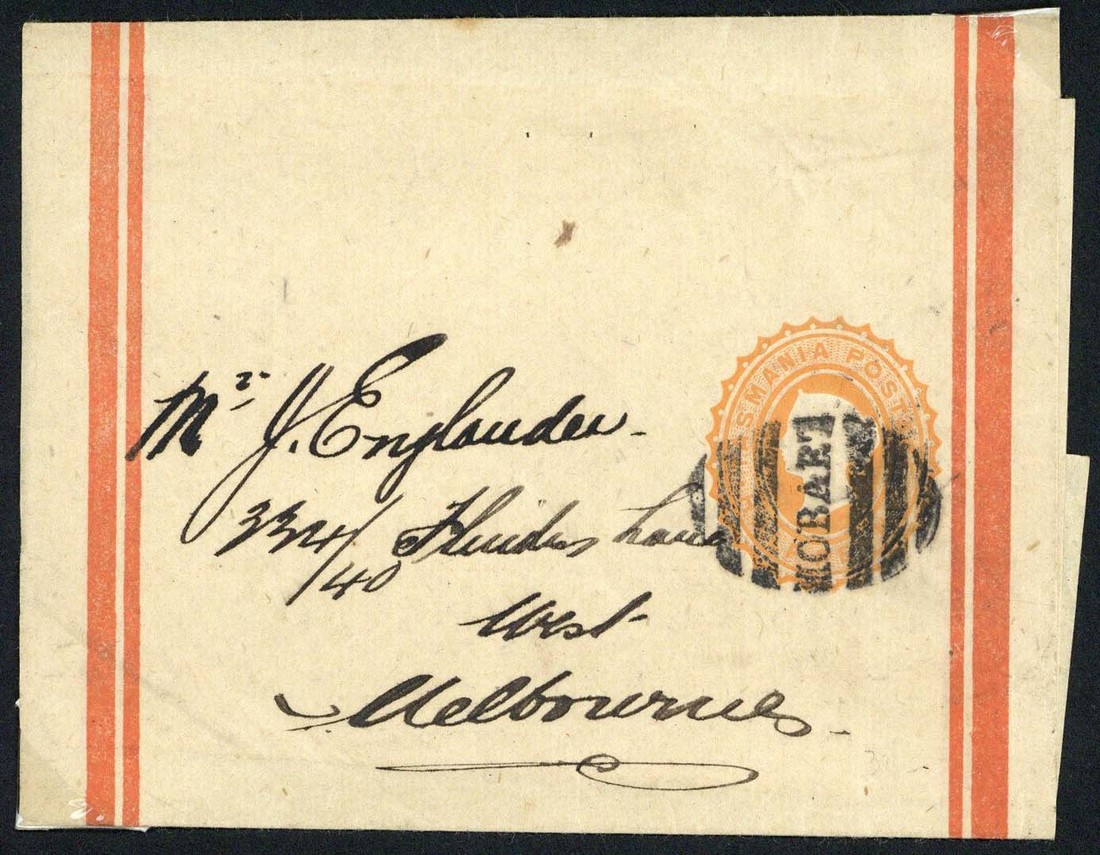 SMANIA POST
HOBART
Mr. J. Englander
334/40 Flinders Lane
West
Melbourne